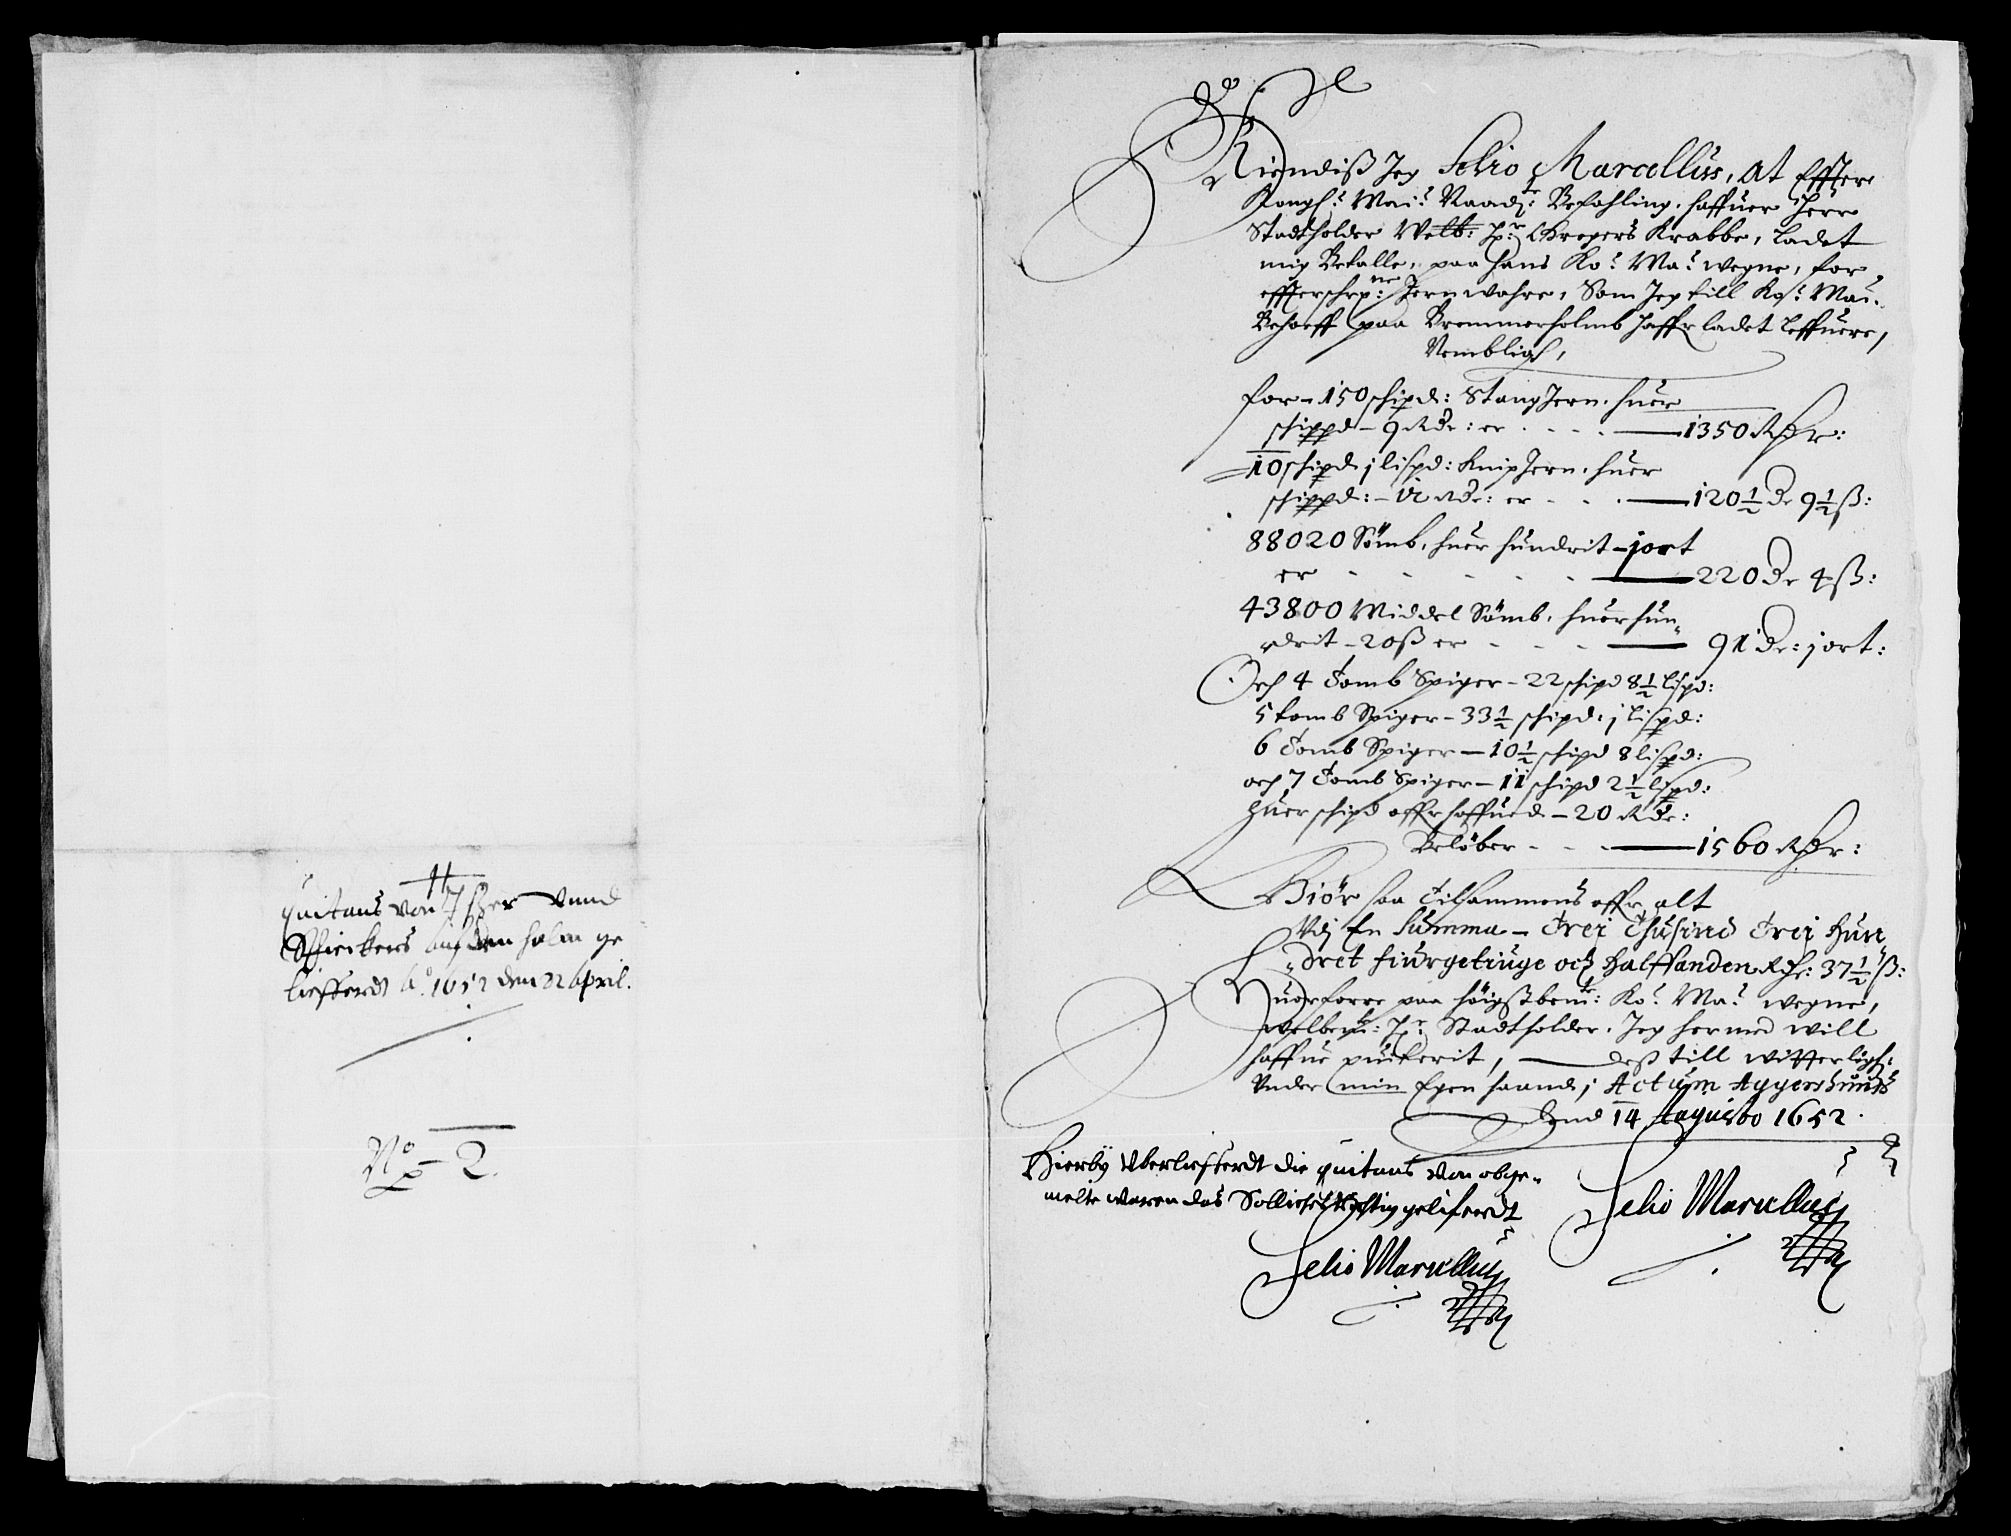 quitans von Jßer vnnd
Spickers auf den holm ge
liefferdt Ao. 1652 den 22 April.
No 2.
Kiendiß Jeg Selio Marcellus, at Effter
Kongl: Mai: Raadz: Befahling, haffuer Herr
Stadtholder Welb: Hr: Gregers Krabbe, ladet
mig Betalle, paa hans Ko: Ma: wegne, for
effterschrne: Jernwahre, Som Jeg till Ko: Mai:
Behoeff paa Bremmerholmb haffr ladet leffuere,
Nembligh,
for - 150 schipd: StangJern, huer
schippd - 9 Rdr: er - - - 1350 Rdr:
10 schipd j lispd: KnipJern, huer
schippd: - 12 Rdr: er - - - 120½ dr 9½ ß:
88020 Sömb, huer hundrit - j ort
er - - - - - 220 dr 4 ß:
43800 Middel Sömb, huer hun-
drit - 20 ß er - - - 91 dr: j ort:
Och 4 Tomb Spiger - 22 schipd 8½ lispd:
5 tomb Spiger - 33½ schipd: j lispd:
6 Tomb Spiger - 10½ schipd 8 lispd:
och 7 Tomb Spiger - 11 schipd 2½ lispd:
huer schipd offr haffued - 20 Rdr:
Belöber - - - 1560 Rdr:
Giör saa Tilsammens offr alt
Vdj En Summa - Trej Thusind Trej Hun-
dret fiurgetiuge och Halffanden Rdr: 37½ ß:
Huorforre paa höigßbemte: Ko: Ma: wegne,
welbemte: Hr: Stadtholder, Jeg hermed will
haffue quiterit, deß till witterligh:
Vnder min Egen haand; Actum Aggershuuß
Dend 14 Augusto 1652.
Selio Marcellus
Hierby Vberliefferdt die quitans von obge-
melte waren das Sollichsß Richtig gelifferdt
Selio Marcellus